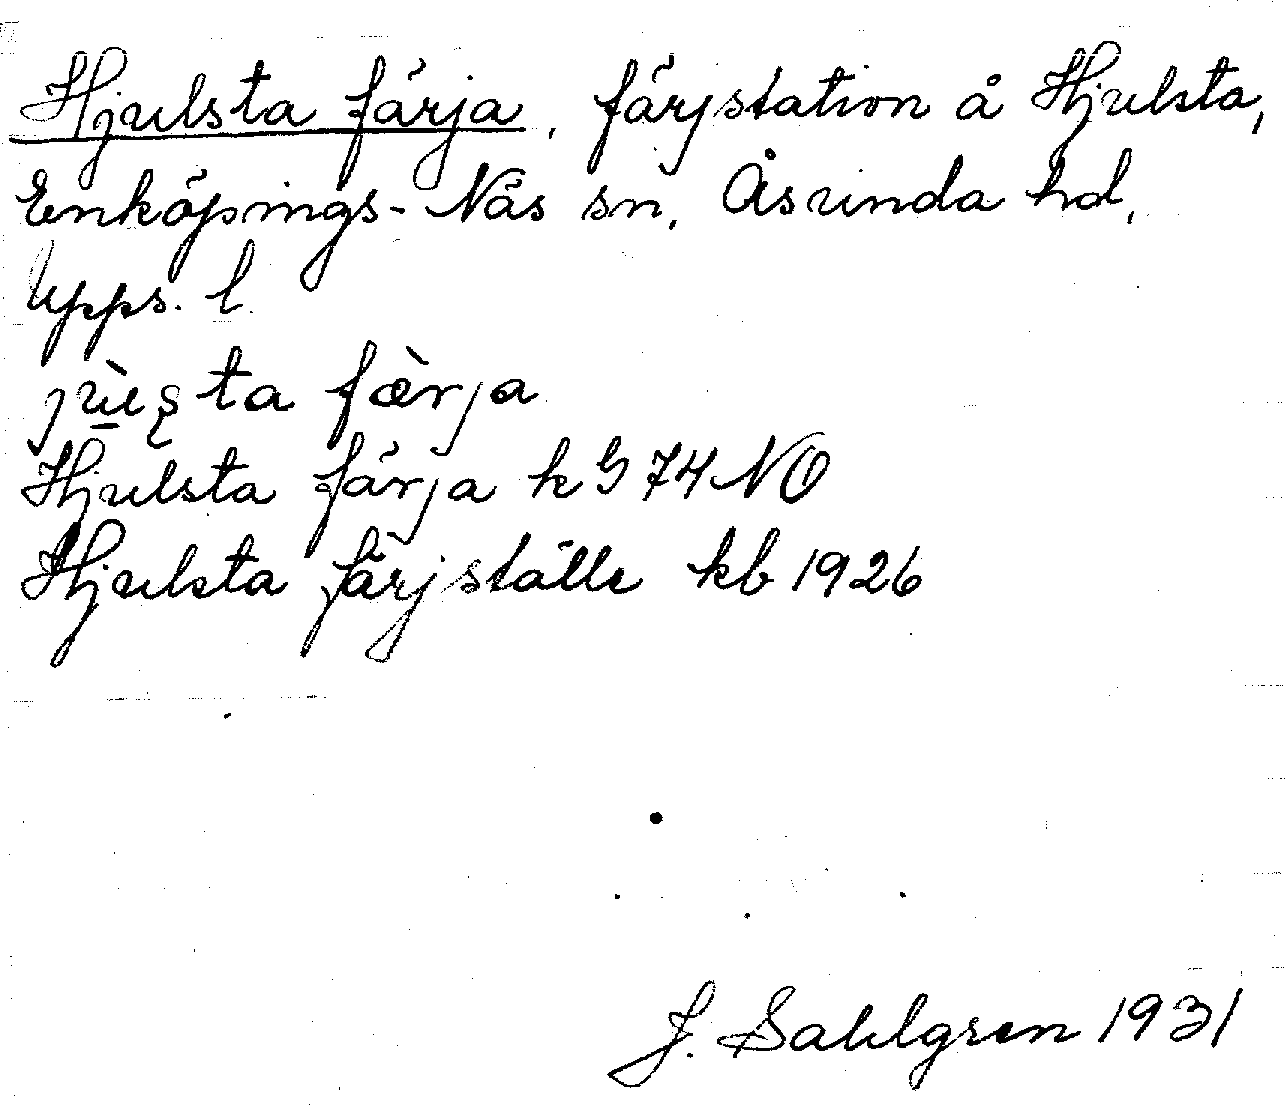 Hjulsta färja, färjstation å Hjulsta,
Enköpings-Näs sn, Åsunda hd,
Upps. l.
färja
Hjulsta färja k G 74 NO
Hjulsta färjställe kb 1926
J. Sahlgren 1931